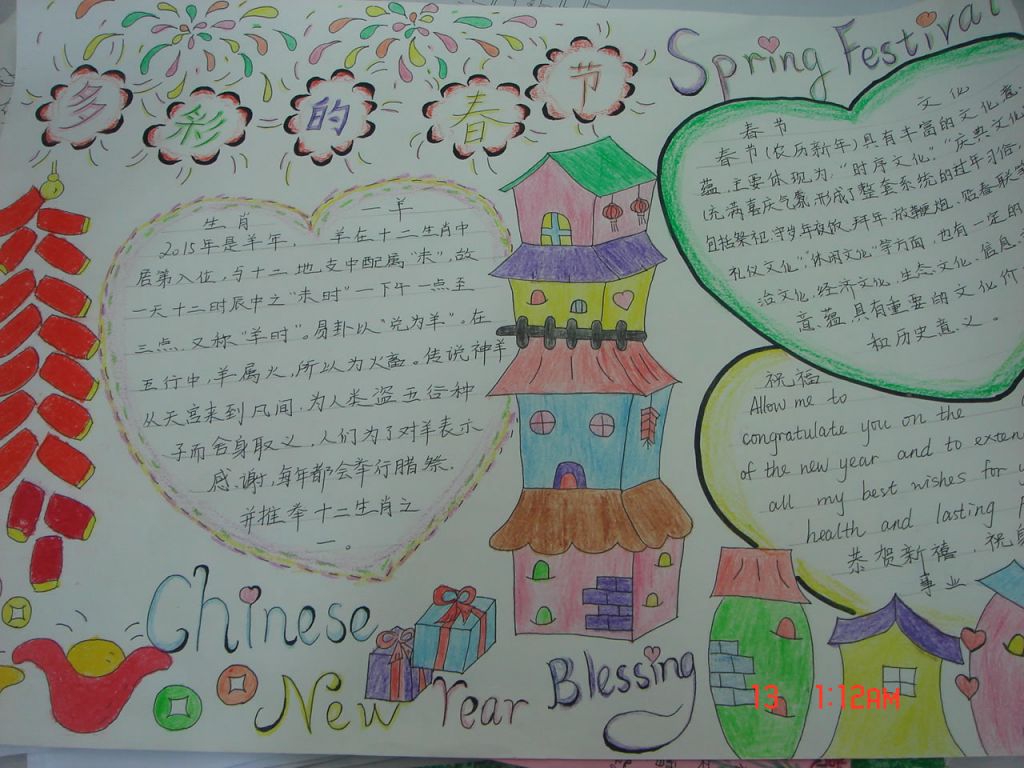 多彩的春节
Spring Festival
生肖 一羊
2015年是羊年， 羊在十二生肖中
居第八位，与十二地支中配属"未"，故
一天十二时辰中之"未时"一下午一点至
三点，又称"羊时"。易卦以"兑为羊"。在
五行中，羊属火，所以为火畜。传说神羊
从天宫来到凡间，为人类盗五谷种
子而舍身取义，人们为了对羊表示
感谢，每年都会举行腊祭.
并推举十二生肖之
一。
春节 文化
春节(农历新年)具有丰富的文化意
蕴，主要体现为，"时序文化"，"庆典文化
(充满喜庆气氛形成了整套系统的过年习俗，
包括祭祀，守岁年夜饭，拜年，放鞭炮，贴春联等
礼仪文化"，"休闲文化"等方面，也有一定的
治文化，经济文化，生态文化，信息
意蕴，具有重要的文化价
和历史意义。
祝福
Allow me to
congratulate you on the
of the new year and to exten
all my best wishes for y
health and lasting
恭贺新禧，祝
事业
Chinese
New Year Blessing
13 1:12AM